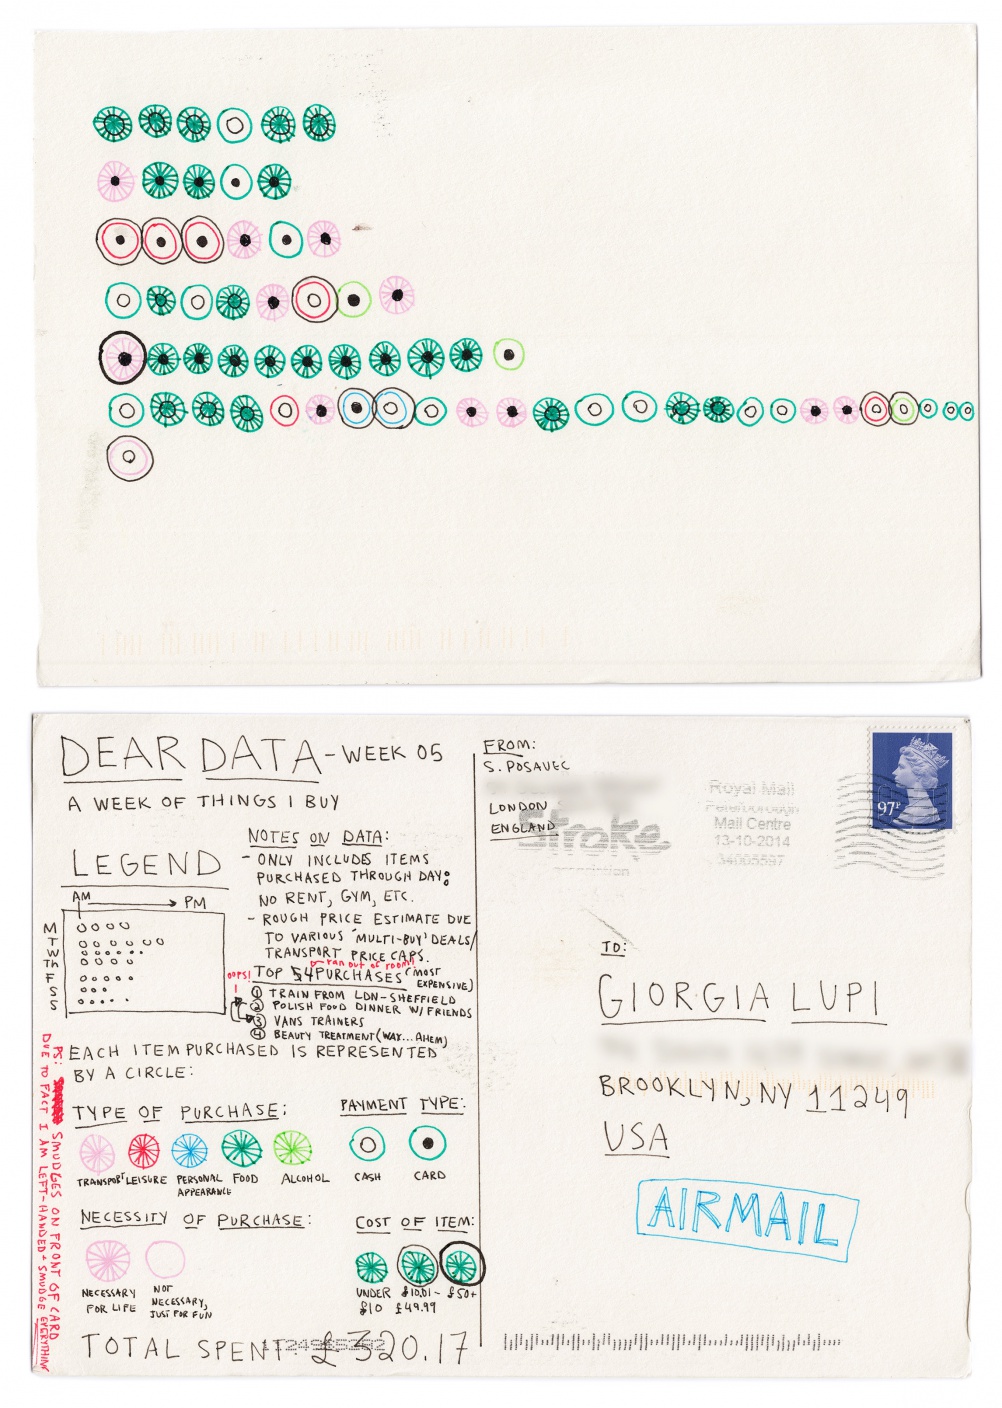 DEAR DATA - WEEK 05
A WEEK OF THINGS I BUY
LEGEND
AM → PM
M
T
W
Th
F
S
S
NOTES ON DATA:
- ONLY INCLUDES ITEMS
PURCHASED THROUGH DAY:
NO RENT, GYM, ETC.
- ROUGH PRICE ESTIMATE DUE
TO VARIOUS 'MULTI-BUY' DEALS/
TRANSPORT PRICE CAPS.
ran out of room!
TOP 4 PURCHASES (MOST
EXPENSIVE)
OOPS!
1 TRAIN FROM LDN-SHEFFIELD
2 POLISH FOOD DINNER W/FRIENDS
3 VANS TRAINERS
4 BEAUTY TREATMENT (WAX...AHEM)
EACH ITEM PURCHASED IS REPRESENTED
BY A CIRCLE:
TYPE OF PURCHASE:
TRANSPORT
LEISURE
PERSONAL
APPEARANCE
FOOD
ALCOHOL
PAYMENT TYPE:
CASH
CARD
NECESSITY OF PURCHASE:
NECESSARY
FOR LIFE
NOT
NECESSARY,
JUST FOR FUN
COST OF ITEM:
UNDER
£10
£10.01-
£49.99
£50+
TOTAL SPENT: £320.17
PS: SMUDGES ON FRONT OF CARD
DUE TO FACT I AM LEFT-HANDED + SMUDGE EVERYTHING
FROM:
S. POSAVEC
LONDON
ENGLAND
Stroke
Royal Mail
Peterborough
Mail Centre
13-10-2014
97P
TO:
GIORGIA LUPI
BROOKLYN, NY 11249
USA
AIRMAIL